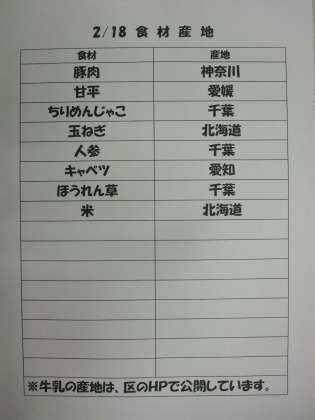 2/18 食材産地
食材 産地
豚肉 神奈川
甘平 愛媛
ちりめんじゃこ 千葉
玉ねぎ 北海道
人参 千葉
キャベツ 愛知
ほうれん草 千葉
米 北海道
※牛乳の産地は、区のHPで公開しています。